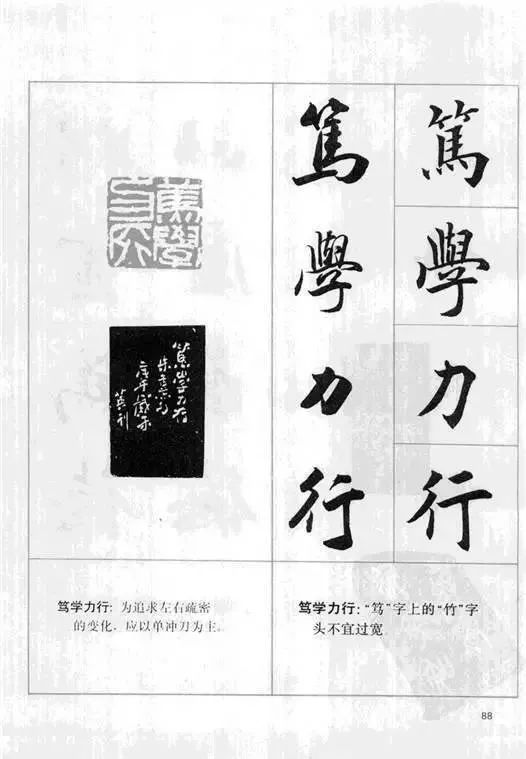 篤
學
力
行
篤
學
力
行
篤學
力行
篤學力行
笃学力行：为追求左右疏密
的变化，应以单冲刀为主。
笃学力行：“笃”字上的“竹”字
头不宜过宽
88